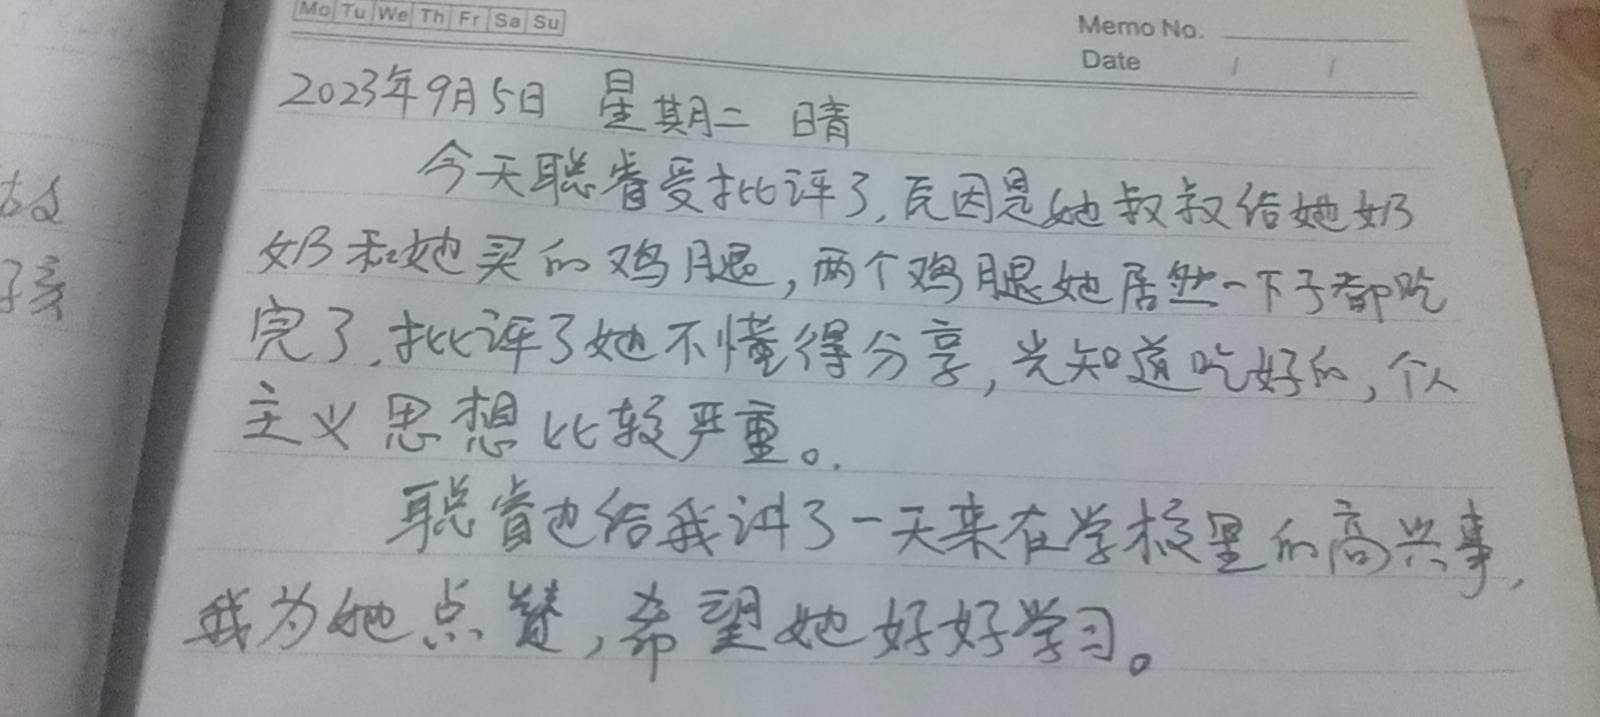 Mo Tu We Th Fr Sa Su
Memo No.
Date / /
2023年9月5日 星期二 晴
今天聪睿受批评了,原因是她叔叔给她奶
奶和她买的鸡腿,两个鸡腿她居然一下子都吃
完了,批评了她不懂得分享,光知道吃好的,个人
主义思想比较严重。
聪睿也给我讲了一天来在学校里的高兴事,
我为她点赞,希望她好好学习。
孩